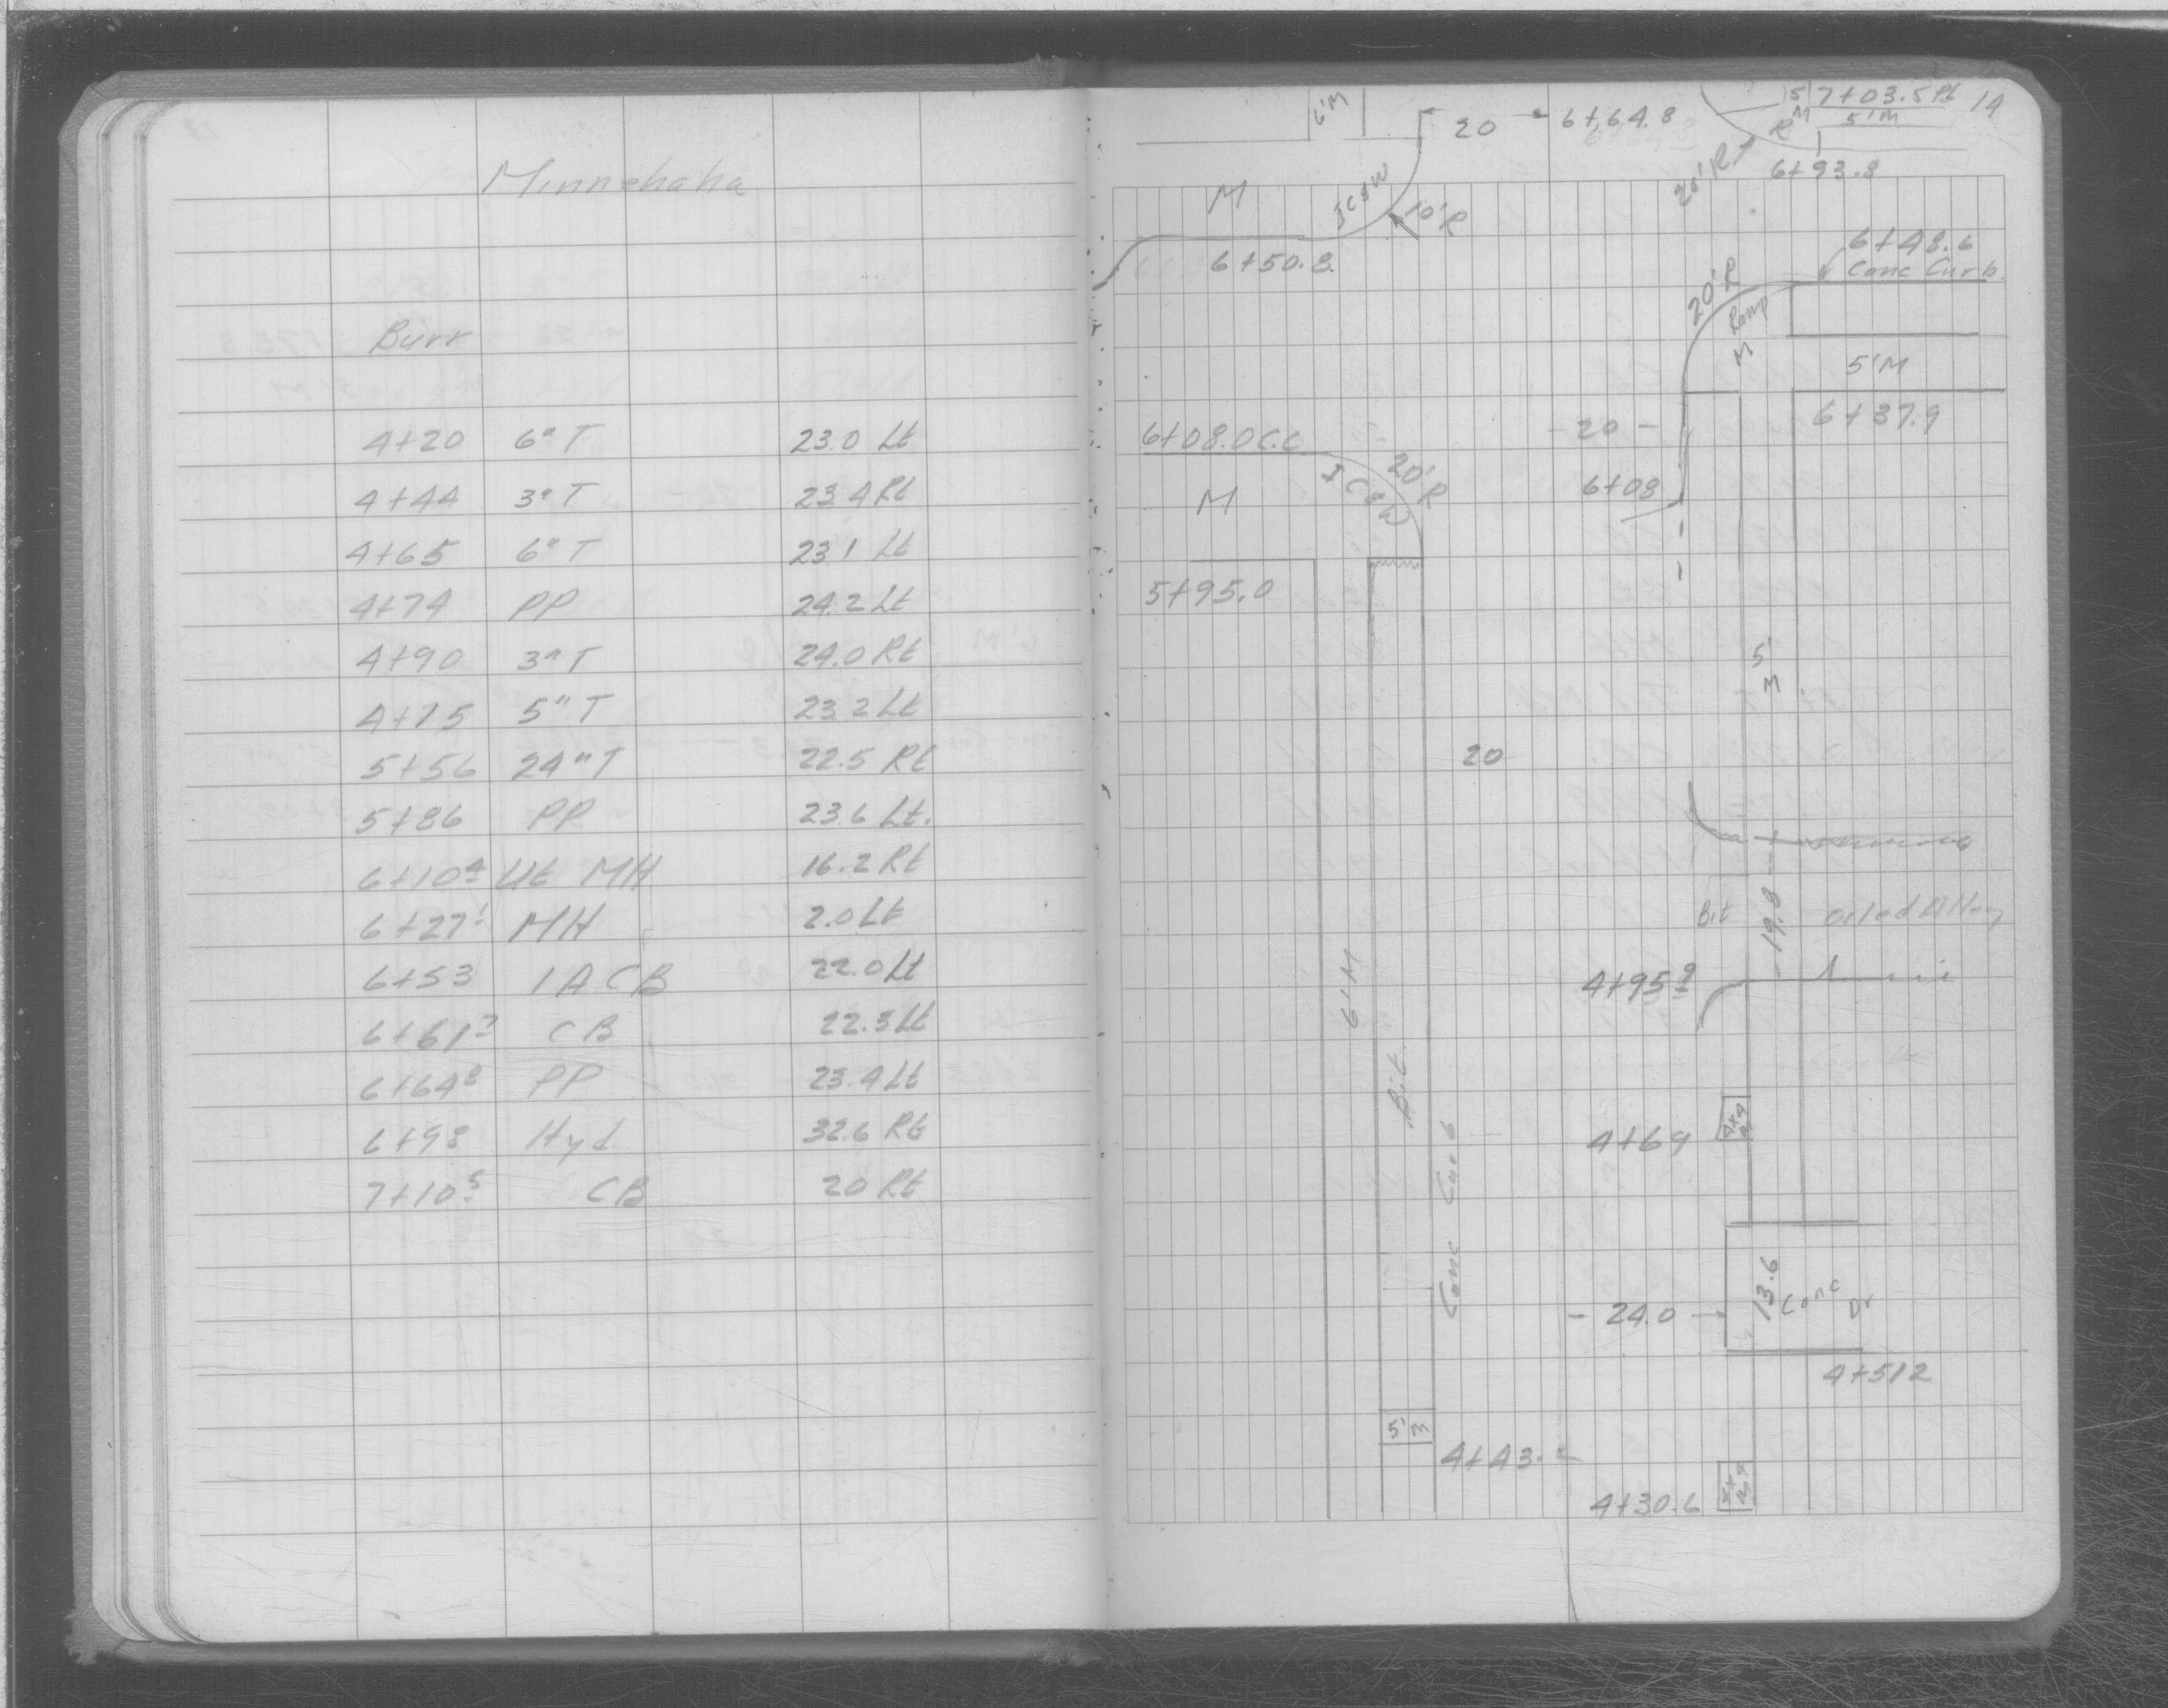 Minnehaha
Burr
4+20 6" T 23.0 Lt
4+44 3" T 23.4 Rt
4+65 6" T 23.1 Lt
4+74 PP 24.2 Lt
4+90 3" T 24.0 Rt
4+75 5" T 23.2 Lt
5+56 24" T 22.5 Rt
5+86 PP 23.6 Lt.
6+10 4 Ut MH 16.2 Rt
6+27 1 MH 2.0 Lt
6+53 1A CB 22.0 Lt
6+61 7 CB 22.3 Lt
6+64 8 PP 23.4 Lt
6+98 Hyd 32.6 Rt
7+10 5 CB 20 Rt
14
6'M
20
6+64.8
5'
M
7+03.5 Rt
5'M
R
20'
6+93.8
M
10'R
6+50.8
6+48.6
Conc Curb
20'R
Ramp
M
5'M
6+37.9
6+08.0 C.C
20'R
M
- 20 -
6+08
5+95.0
5'
M
20
Bit
19.8
Oiled Alley
4+95 9
6'M
Bit.
Conc Curb
4+69
13.6
Conc Dr
- 24.0 -
4+51 2
5'M
4+43.
4+30.6